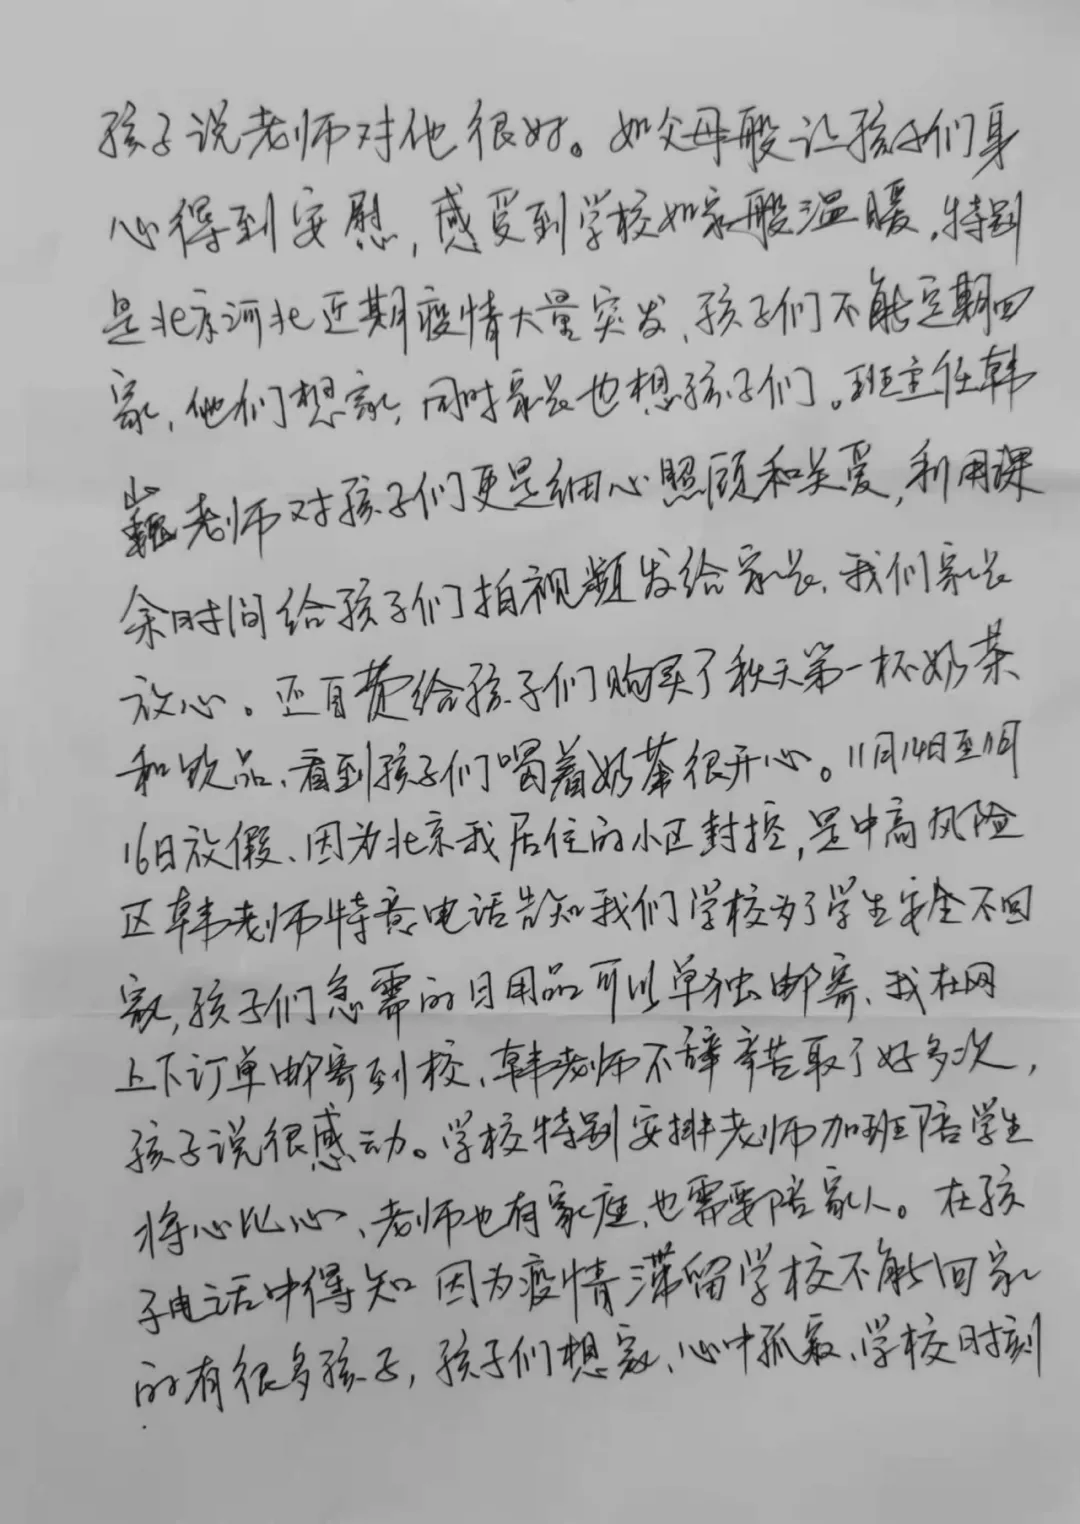 孩子说老师对他很好。如父母般让孩子们身
心得到安慰，感受到学校如家般温暖，特别
是北京河北近期疫情大量突发、孩子们不能定期回
家，他们想家，同时家长也想孩子们。班主任韩
巍老师对孩子们更是细心照顾和关爱，利用课
余时间给孩子们拍视频发给家长、我们家长
放心。还自费给孩子们购买了秋天第一杯奶茶
和饮品、看到孩子们喝着奶茶很开心。11月14日至11月
16日放假、因为北京我居住的小区封控，是中高风险
区韩老师特意电话告知我们学校为了学生安全不回
家，孩子们急需的日用品可以单独邮寄、我在网
上下订单邮寄到校、韩老师不辞辛苦取了好多次，
孩子说很感动。学校特别安排老师加班陪学生
将心比心、老师也有家庭、也需要陪家人。在孩
子电话中得知因为疫情滞留学校不能回家
的有很多孩子，孩子们想家、心中孤寂、学校时刻